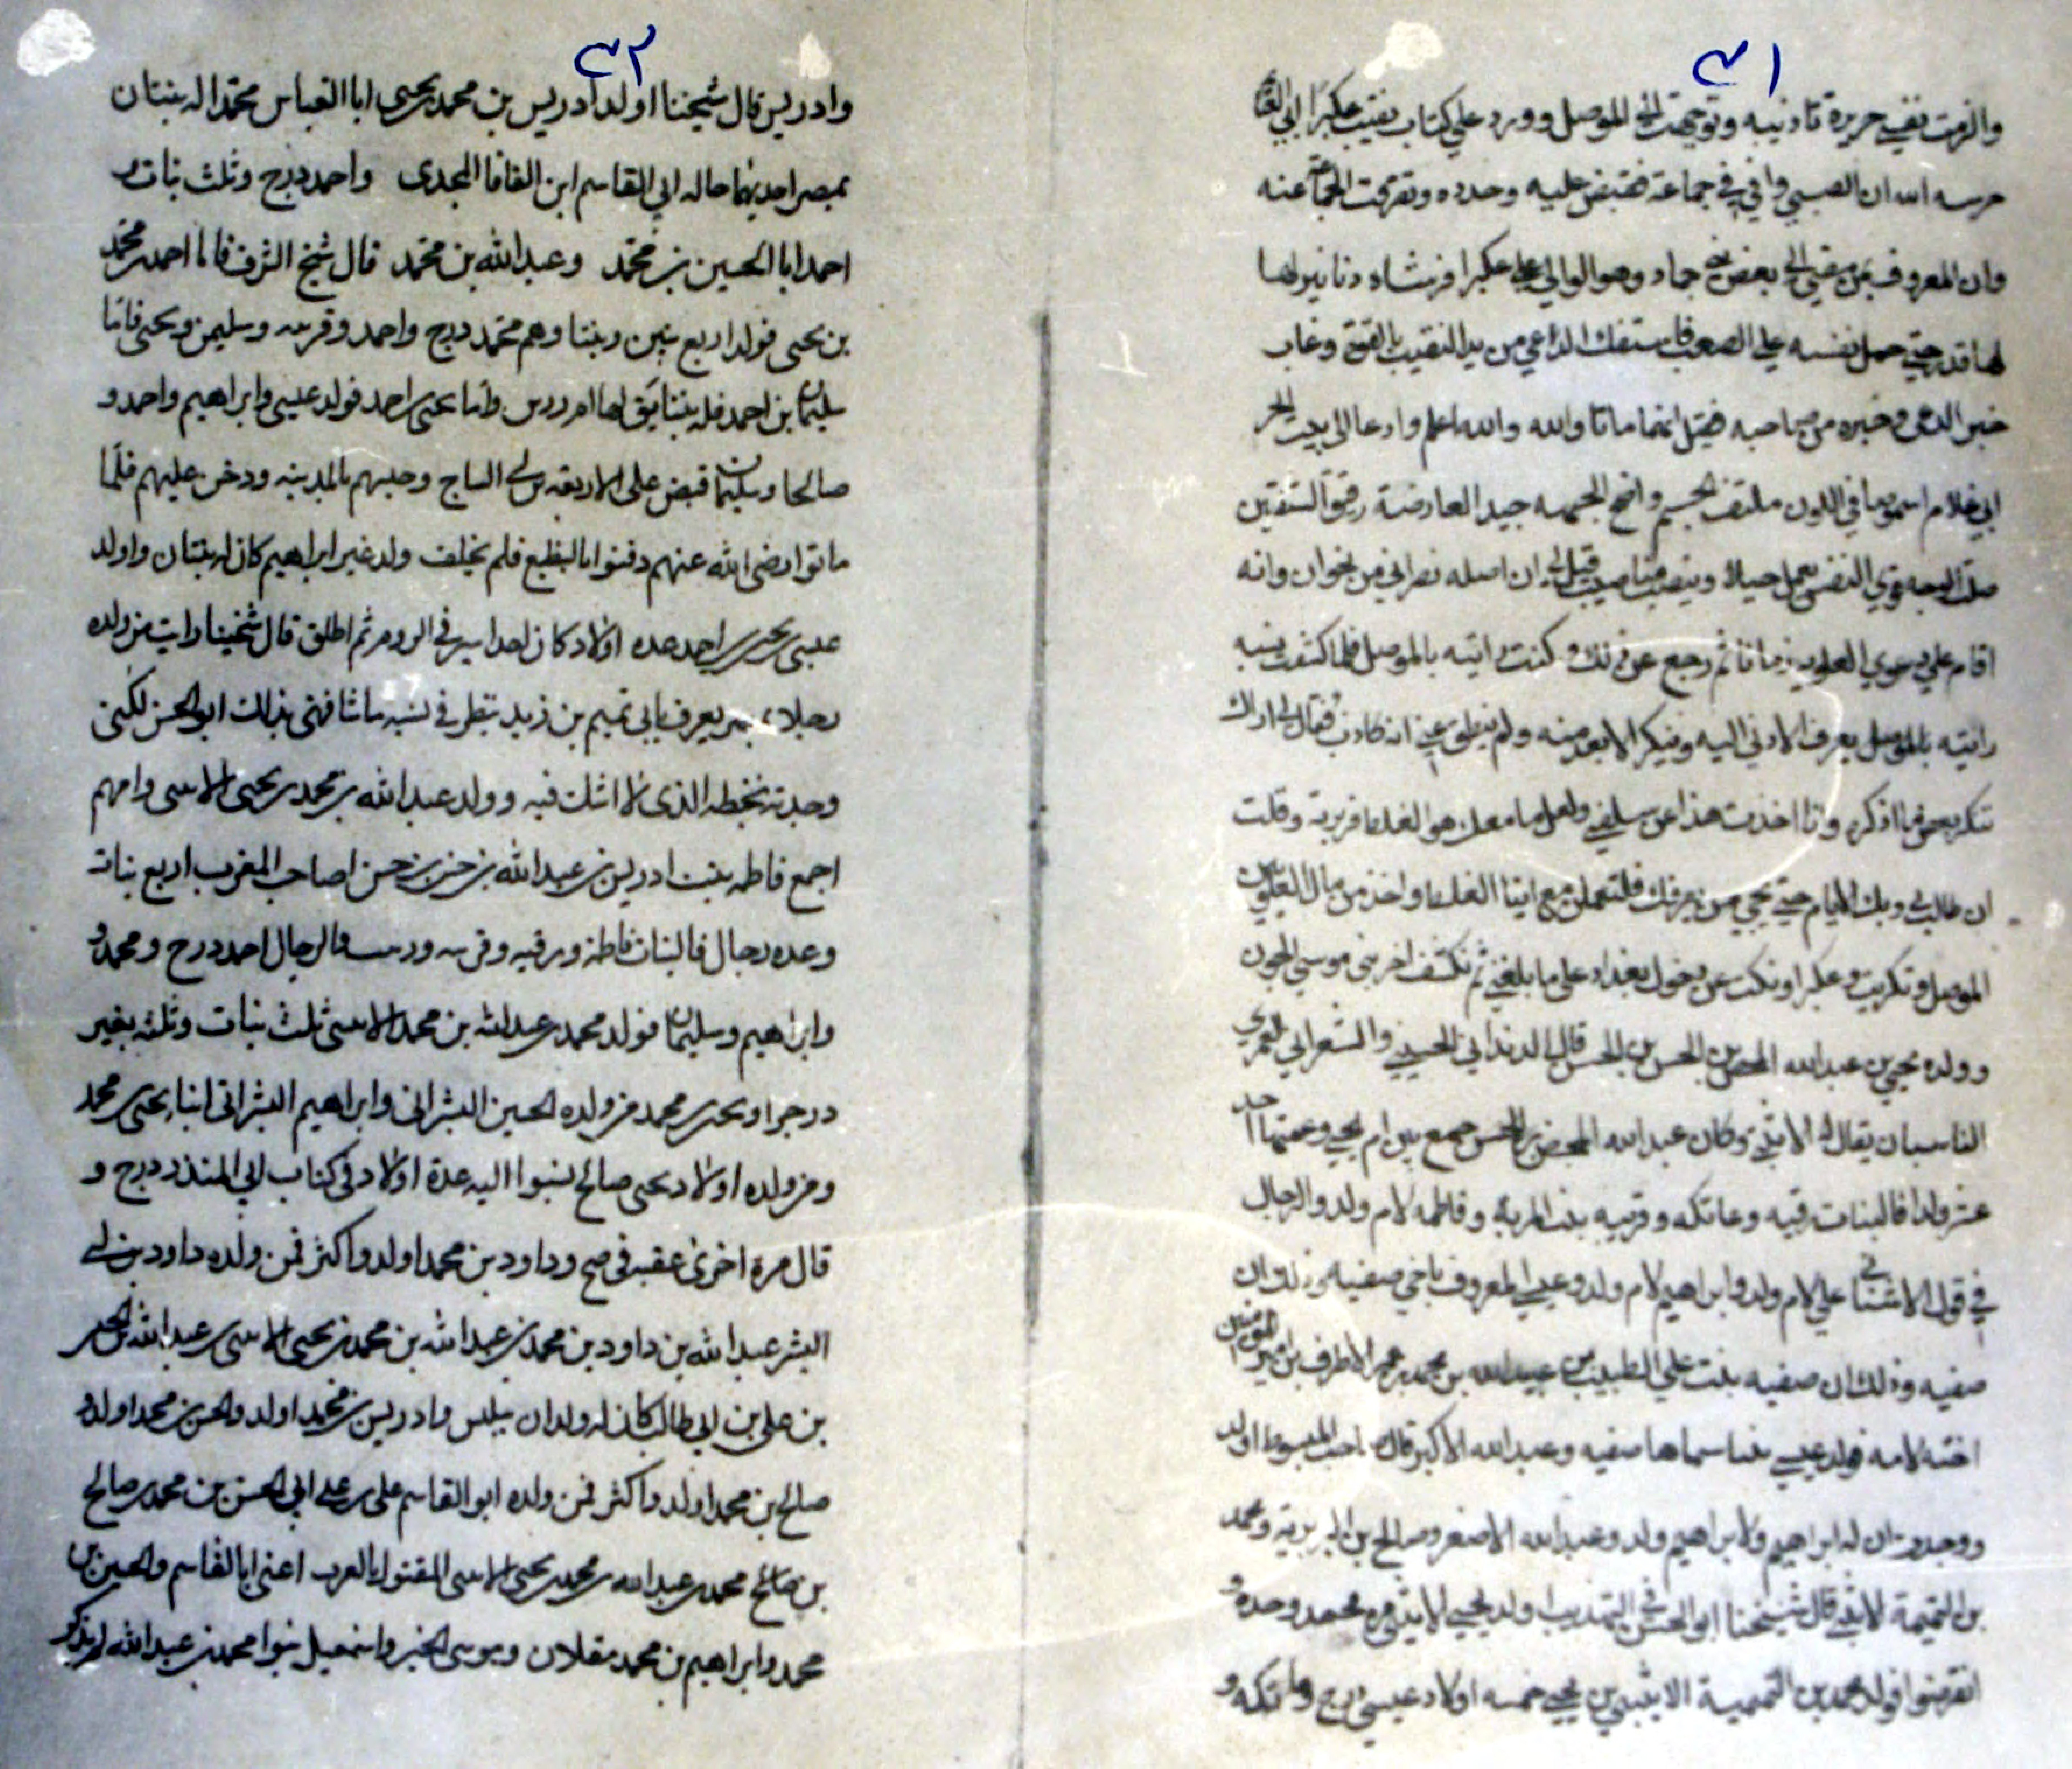 ٣١
والزمت نفسي جريرة تأديبه وتوجهت الى الموصل وورد علي كتاب نقيب عكبرا ابي الغنا
حرسه الله ان الصبي وافى في جماعة فقبض عليه وحدده وتفرقت الجماعة عنه
وان المعروف سعى الى بعض بني حماد وهو الوالي على عكبرا فرشاه دنانير لها
لها قدر حتى حمل نفسه على الصعب فاستنفك الداعي من يد النقيب بالقوة وغاب
خبر الدعي وخبره من صاحبه فقيل انهما ماتا والله والله اعلم وادعا الى بيت الحر
ابي غلام اسمر صافي اللون ملتف الجسم واضح الجبهه جيد العارضة رقيق الشفتين
صلت الوجه قوي النفس يعمل حيلا وينصب قيل لي ان اصله نصراني من وانه
اقام على دعوي العلوية زمانا ثم رجع عن ذلك وكنت رايته بالموصل فلما كشفت نسبه
رايته بالموصل يعرف الادنى اليه وينكر الابعد منه ولم ينطق عني انه كاذب فقال لي اراك
تنكر بعض ما اذكر وانا اخذت هذا عن سلفي ولعل ما معك هو الغلط فزبرته وقلت
ان طالت بي وبك الايام حتى يجي من يعرفك فلتعلمن مع اينا الغلط واخذ من مال العلويين
الموصل وتكريت وعكبرا ونكت عن دخول بغداد على ما بلغني ثم نكشف اخر بني موسى الجون
وولد يحيى بن عبدالله المحض بن الحسن بن الحسن قال الدنداني الحسيني والشعراني العمري
الناسبان يقال له الاثبثي وكان عبدالله المحض بن الحسن جمع بين ام يحيى وعمتها احد
عشر ولدا فالبنات رقيه وعاتكه وقريبه بنت المريه وفاطمه لام ولد والرجال
في قول الاشناني علي لام ولد وابراهيم لام ولد وعيسى المعروف باخي صفيه
صفيه وذلك ان صفيه بنت علي الطبيب بن عبيدالله بن محمد بن عمر الاطرف بن امير المومنين
اخته لامه فولد عيسى بنتا سماها صفيه وعبدالله الاكبر قال صاحب المبسوط اولد
ووجدت ان له ابراهيم ولابراهيم ولد وعبدالله الاصغر وصالح بن البربرية ومحمد
بن التميمة الاثبثي قال شيخنا ابو الحسن في التهذيب اولد يحيى الاثبثي من محمد وحده و
انقرضوا فولد محمد بن التميمية الاثبثي بن يحيى خمسه اولاد عيسى درج وعاتكه و
٣٢
وادريس قال شيخنا اولد ادريس بن محمد بن يحيى ابا العباس محمدا له بنتان
بمصر احديهما خاله ابي القاسم ابن القافا المجدى واحمد درج وثلث بنات
احمد ابا الحسين بن محمد وعبدالله بن محمد قال شيخ الشرف فاما احمد بن محمد
بن يحيى فولد اربع بنين وبنتا وهم محمد درج واحمد وقريبه وسليمن ويحيى فاما
سليمان بن احمد فله بنتا يق لها ام ادريس واما يحيى بن احمد فولد عيسى وابراهيم واحمد و
صالحا وسليمان قبض على الاربعه بن ابي الساج وحبسهم بالمدينه ودخن عليهم فلما
ماتوا رضى الله عنهم دفنوا بالبقيع فلم يخلف ولد غير ابراهيم كان له بنتان واولد
عيسى بن يحيى بن احمد عده اولاد كان احدا سير في الروم ثم اطلق قال شيخنا رايت من ولده
رجلا بمصر يعرف بابي تميم بن زيد ينظر في نسبه ما شافهنى بذلك ابو الحسن لكني
وجدته بخطه الذى لا اشك فيه وولد عبدالله بن محمد بن يحيى الاثبثى وامهم
اجمع فاطمه بنت ادريس بن عبدالله بن حسن بن حسن اصاحب المغرب اربع بنات
وعده رجال فالبنات فاطمه ورقيه وقريبه و والرجال احمد درج ومحمد و
وابراهيم وسليمان فولد محمد بن عبدالله بن محمد الاثبثى ثلث بنات وثلثه بغير
درجوا ويحيى بن محمد من ولده الحسين البشرانى وابراهيم البشرانى ابنا يحيى بن محمد
ومن ولده اولاد يحيى صالح نسبوا اليه عدة اولاد فى كتاب ابي المنذر درج و
قال مرة اخرى عقبه فى صح وداود بن محمد اولد واكثر فمن ولده داود بن ابي
البشر عبدالله بن داود بن محمد بن عبدالله بن محمد بن يحيى الاثبثى بن عبدالله بن الحسن
بن على بن ابي طالب كان له ولدان ببليس وادريس بن محمد اولد والحسن بن محمد اولد و
صالح بن محمد اولد واكثر فمن ولده ابو القاسم على بن على ابي الحسن بن محمد بن صالح
بن صالح محمد بن عبدالله بن محمد بن يحيى الاثبثى المقتول بالعرب اعنى ابا القاسم والحسين بن
محمد وابراهيم بن محمد مقلان وموسى الخير واسمعيل بنوا محمد بن عبدالله لم يذكر